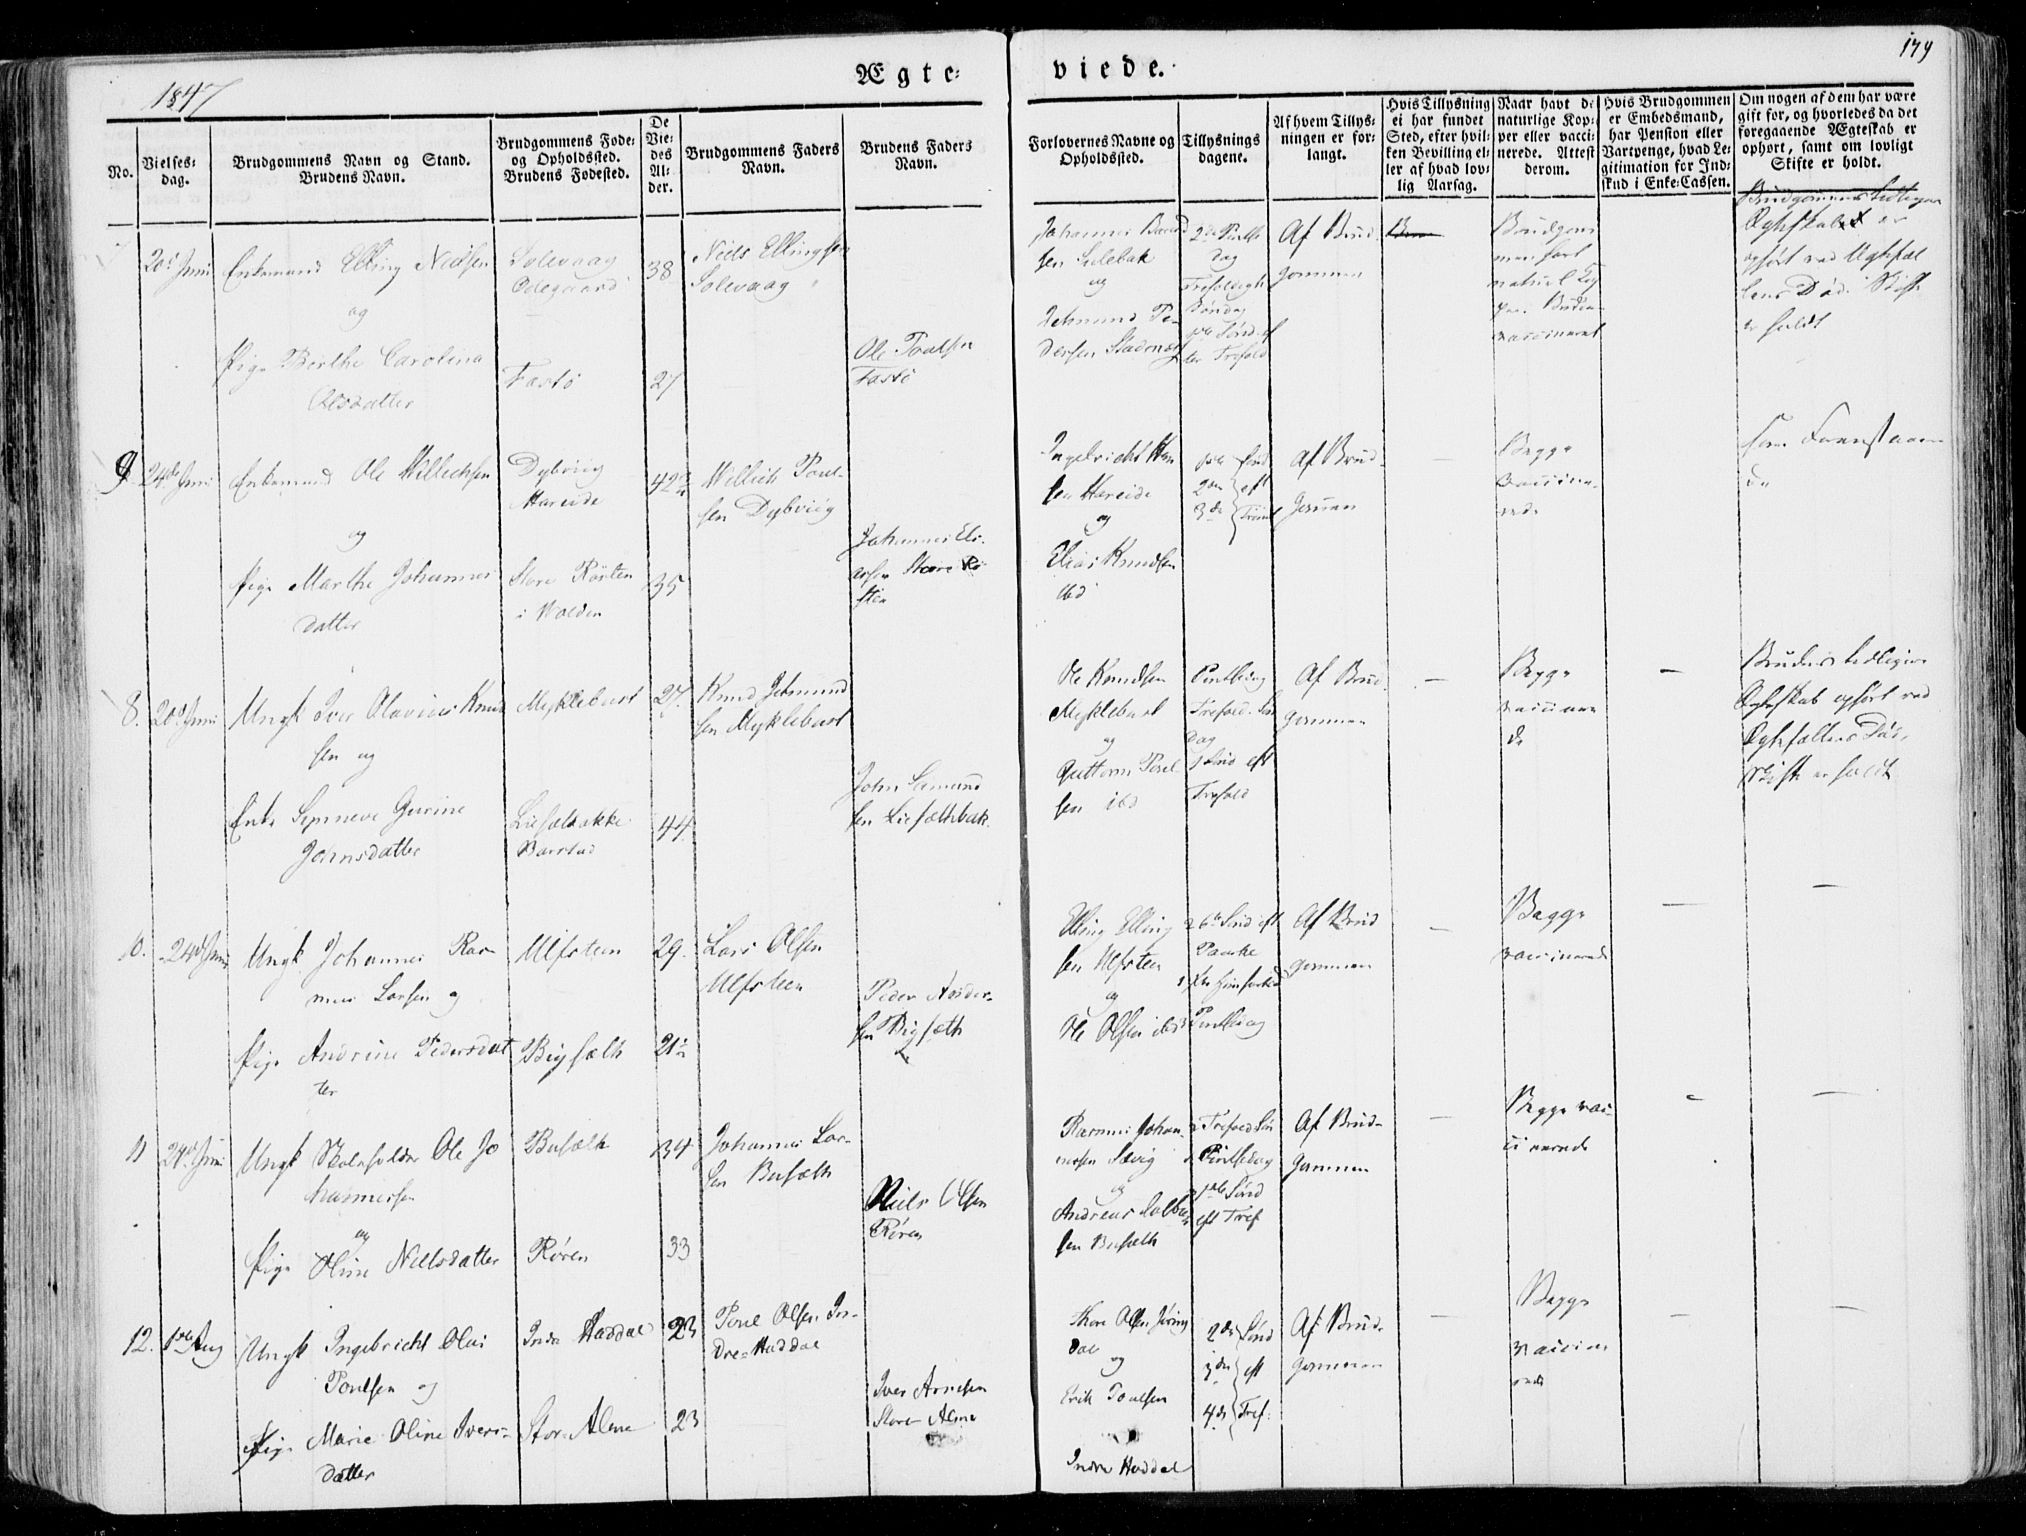 1847
Ægte-
viede.
179
No.
Vielses-
dag.
Brudgommens Navn og Stand.
Brudens Navn.
Brudgommens Føde-
og Opholdssted.
Brudens Fødested.
De
Vie-
des
Al-
der.
Brudgommens Faders
Navn.
Brudens Faders
Navn.
Forlovernes Navne og
Opholdssted.
Tillysnings
dagene.
Af hvem Tillys-
ningen er for-
langt.
Hvis Tillysning
ei har fundet
Sted, efter hvil-
ken Bevilling el-
ler af hvad lov-
lig Aarsag.
Naar havt de
naturlige Kop-
per eller vacci-
nerede. Attest
derom.
Hvis Brudgommen
er Embedsmand,
har Pension eller
Vartpenge, hvad Le-
gitimation for Ind-
skud i Enke-Cassen.
Om nogen af dem har være
gift før, og hvorledes da det
foregaaende Ægteskab er
ophørt, samt om lovligt
Skifte er holdt.
7
20de Juni
Enkemand Elling Nielsen
og
Pige Berthe Carolina
Olsdatter
Solevaag
Ødegaard
Fastø
38
27
Niels Ellingsen
Solevaag
Ole Poulsen
Fastø
sen Sulebak
og
Jetmund Pe-
dersen
2de Pintse
Dag
Søndag
1ste Sønd. ef
ter Trefold
Af Brud-
gommen
Brudgom
men havt
naturl. Kop
per. Bruden
vaccineret
Brudgommens tidligere
Egteskab er
ophørt ved Egtefæl
lens Død. Skifte
er holdt
9.
24de Juni
Enkemand Ole Willechsen
og
Pige Marthe Johannes
datter
Dybviig
Hareide
Store Røsten
i Wolden
42
35
Willich Poul-
sen Dybviig
Johannes Eli-
assen Store Rø
sten
Ingebricht Han
sen Hareide
og
Elias Knudsen
ibd
1ste Sønd
2den eft
3de Trinit
Af Brud-
gommen
Begge
vaccine-
rede
som Foranstaaen
de
8.
20de Juni
Ungk Iver Olavius Knud
sen og
Enke Synneve Gurine
Johnsdatter
Myklebust
Barstad
27
44
Knud Jetmund
sen Myklebust
John Samund
sen
Ole Knudsen
Myklebust
og
Guttorm Poul
sen ibd
Pintsedag
Trefold. Søn
dag
1 Sønd eft
Trefold
Af Brud-
gommen
Begge
vaccinere
de
Brudens tidligere
Egteskab ophørt ved
Egtefællens Død,
Skifte er holdt
10.
24de Juni
Ungk Johannes Ras-
mus Larsen og
Pige Andrine Pedersdat
ter
Ulfsteen
Bigsæth
29.
21½
Lars Olsen
Ulfsteen
Peder Ander-
sen Bigsæth
Elling Elling
sen Ulfsteen
og
Ole Olsen ibd
6te Sønd eft
Paaske
Pintsedag
Af Brud
gommen
Begge
vaccinerede
11
24de Juni
Ungk Skoleholder Ole Jo
hannessen
og
Pige Oline Nielsdatter
Busæth
Røren
34
33
Johannes Lar-
sen Busæth
Niels Olsen
Røren
Rasmus Johan-
nessen Sævig
og
Andreas
sen Busæth
Trefold Søn
Pintsedag
1ste Sønd
eft Tref
Af Brud-
gommen
Begge vac-
cinerede
12.
1ste Aug
Ungk Ingebricht Olai
Poulsen og
Pige Marie Oline Ivers-
datter
Indre Haddal
Stor-Alme
23
23
Poul Olsen In-
dre-Haddal
Iver Arnesen
Store Alme
Thore Olsen
dal
og
Erik Poulsen
Indre Haddal
2de Sønd
3de eft
4de Tref.
Af Brud-
gommen
Begge
vaccine
rede